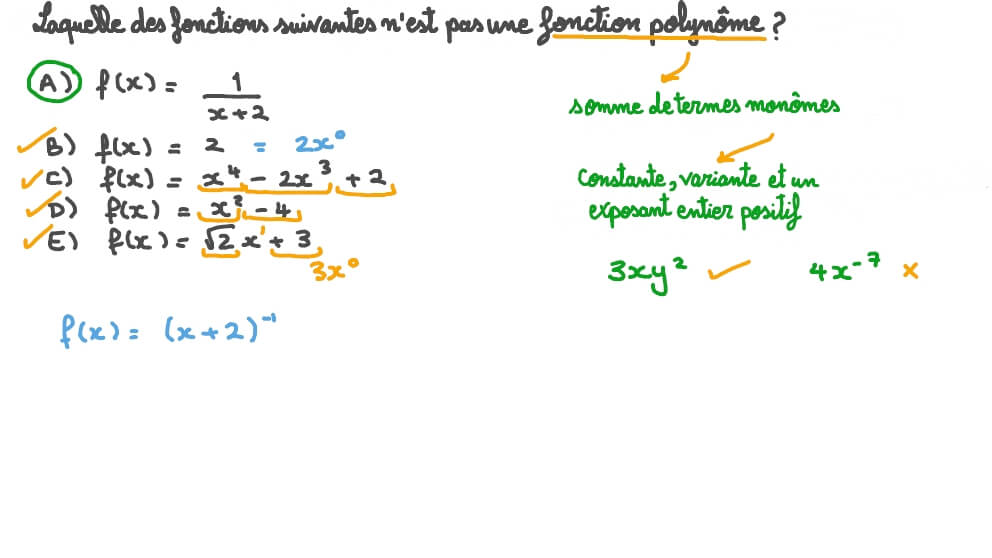 Laquelle des fonctions suivantes n'est pas une fonction polynôme ?
A) f(x) = 1/(x+2)
B) f(x) = 2 = 2x⁰
C) f(x) = x⁴ - 2x³ + 2
D) f(x) = x² - 4
E) f(x) = √2 x¹ + 3
3x⁰
f(x) = (x+2)⁻¹
somme de termes monômes
constante, variante et un
exposant entier positif
3xy² ✓ 4x⁻⁷ ×